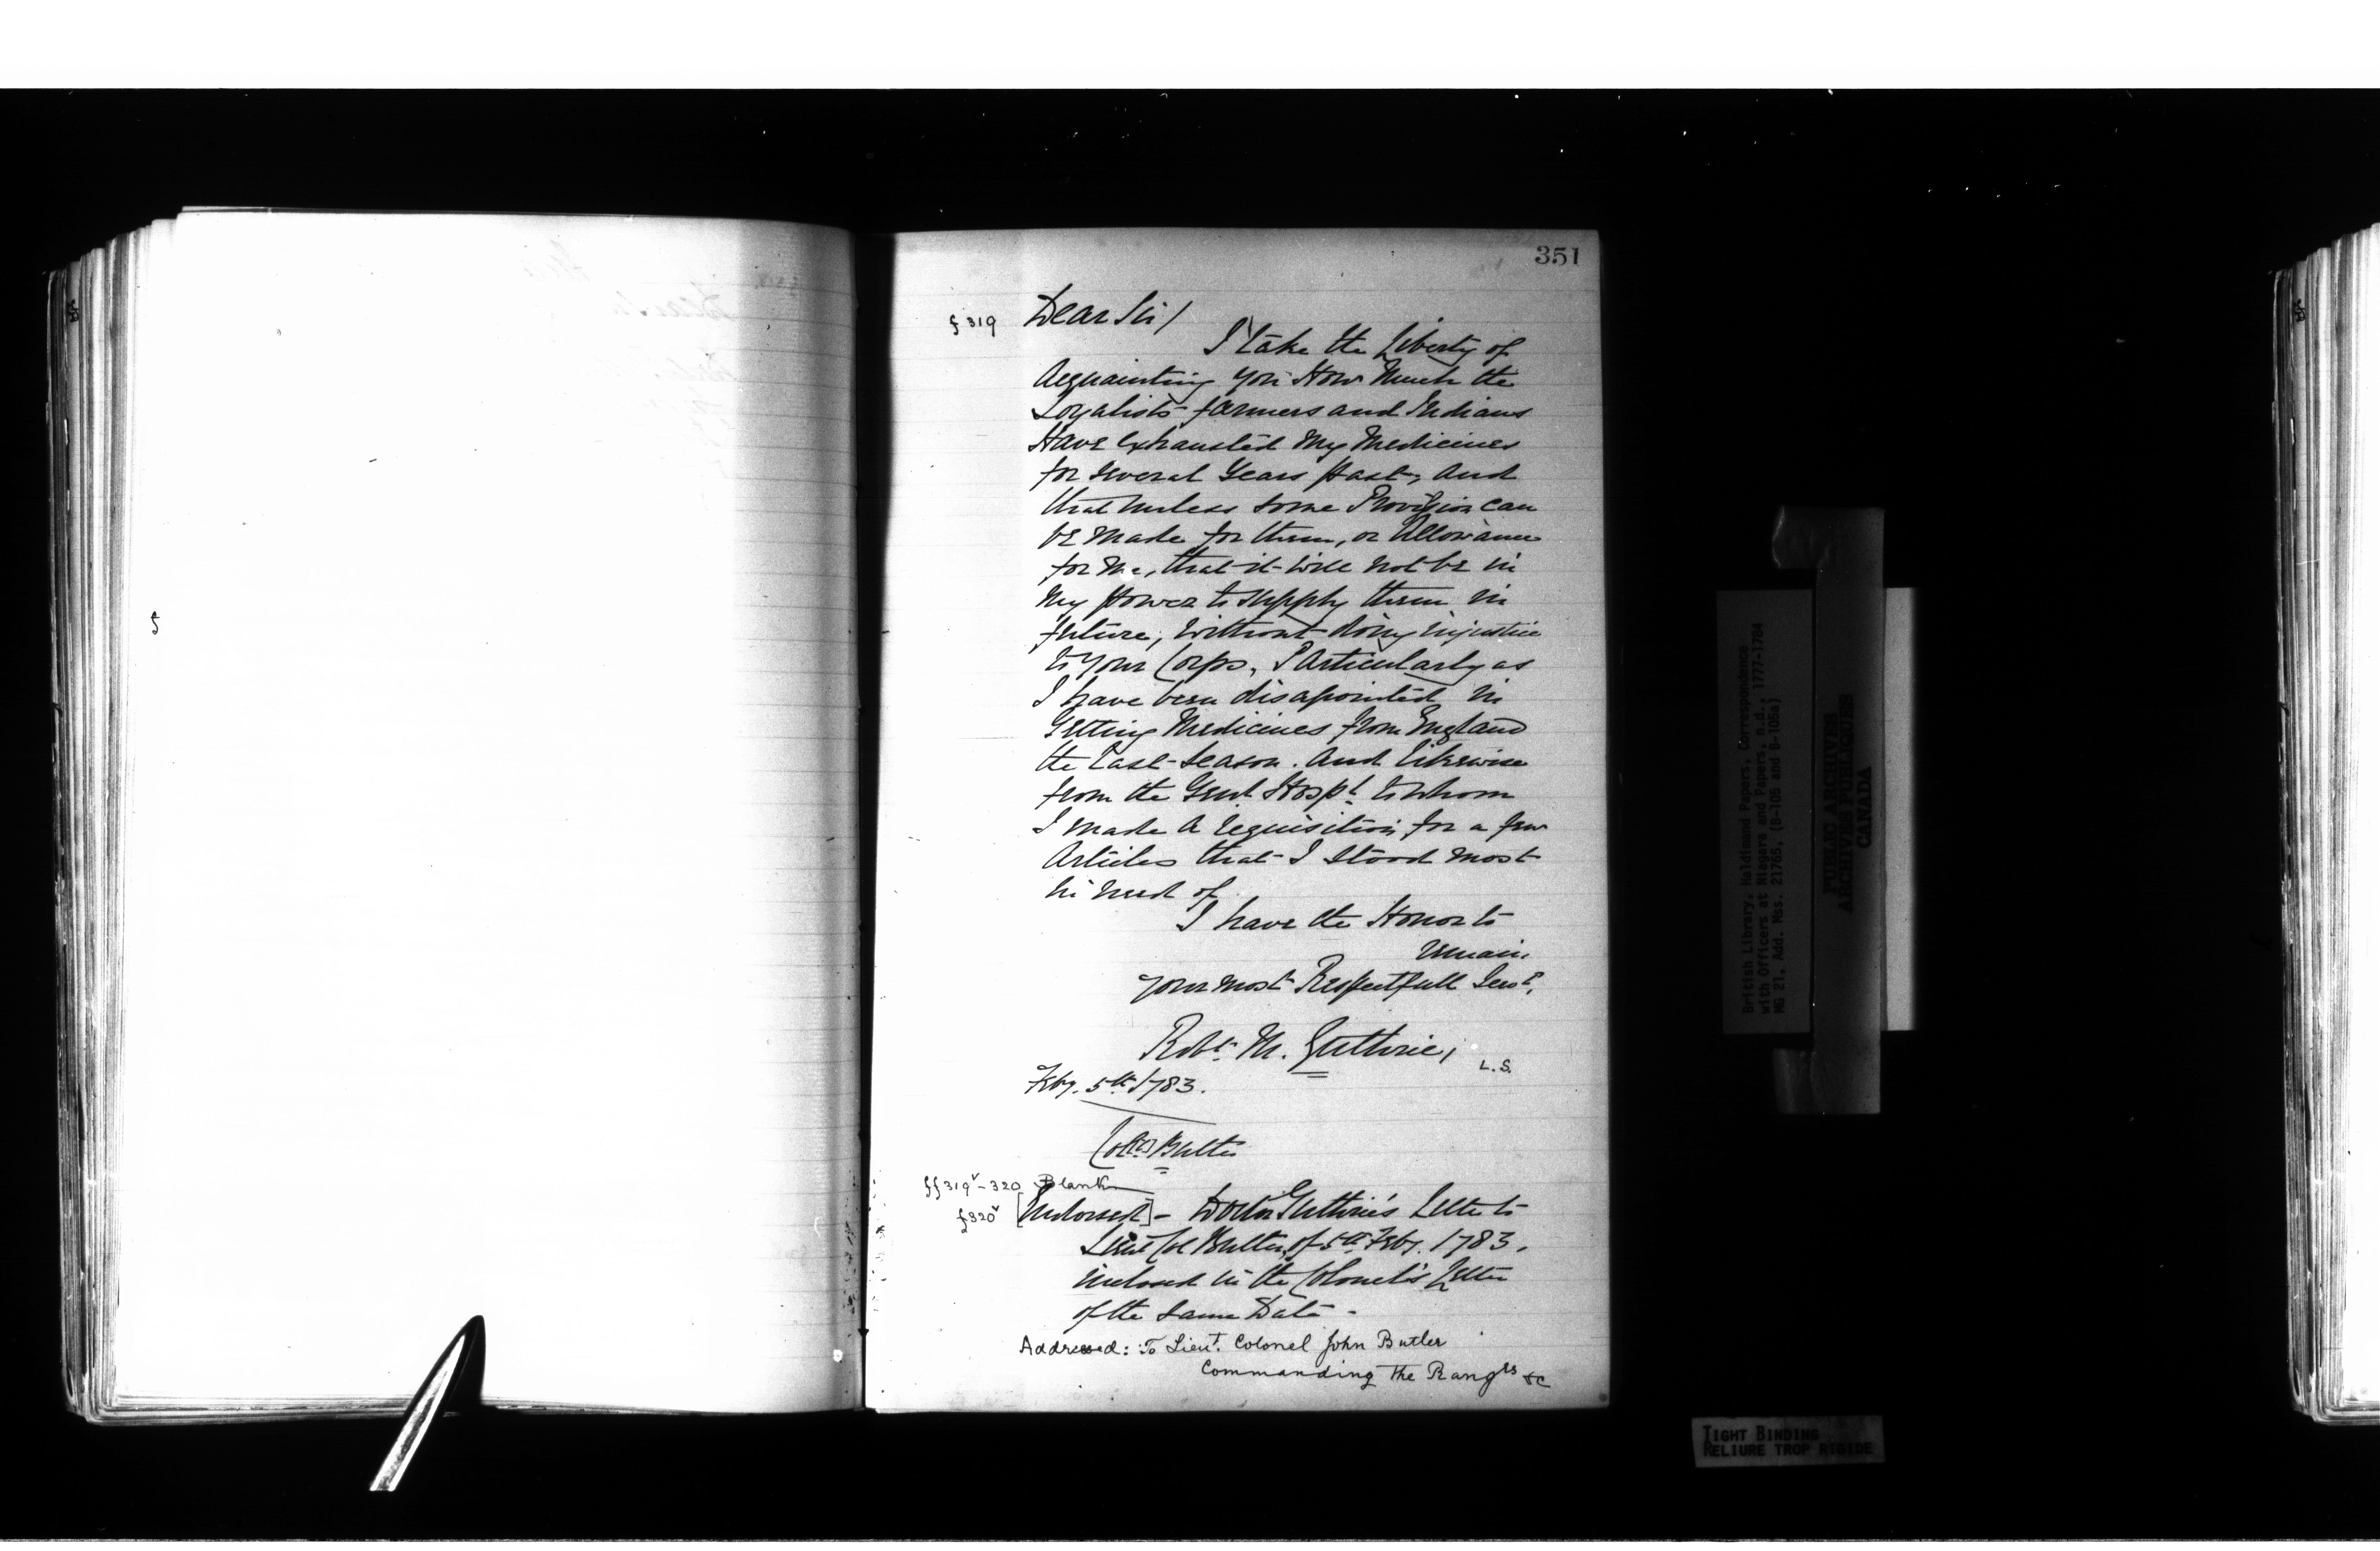 351
f 319 Dear Sir/
I take the Liberty of
Acquainting you How Much the
Loyalists farmers and Indians
Have exhausted My Medicines
for several Years past, and
that unless some Provision can
be made for them, or Allowance
for Me, that it will not be in
My power to supply them in
future, without doing injustice
to your Corps, Particularly as
I have been disapointed in
Getting Medicines from England
the Last Season. And Likewise
from the Genl Hospl. to whom
I made A requisition for a few
Articles that I stood most
in need of
I have the Honor to
remain
your most Respectfull Servt.
Robt. M. Guthrie,
L.S.
Feby. 5th 1783.
Butler
ff 319v - 320 Blank
f 320v [Endorsed] - Doctor Guthrie's Letter to
Lieut Col Butler, of 5th Feby. 1783.
inclosed in the Colonel's Letter
of the same Date -
Addressed: To Lieut. Colonel John Butler
Commanding The Rangrs &c
British Library, Haldimand Papers, Correspondence
with Officers at Niagara and Papers, n.d., 1777-1784
MG 21, Add. Mss. 21765, (B-105 and B-105a)
PUBLIC ARCHIVES
ARCHIVES PUBLIQUES
CANADA
TIGHT BINDING
RELIURE TROP RIGIDE